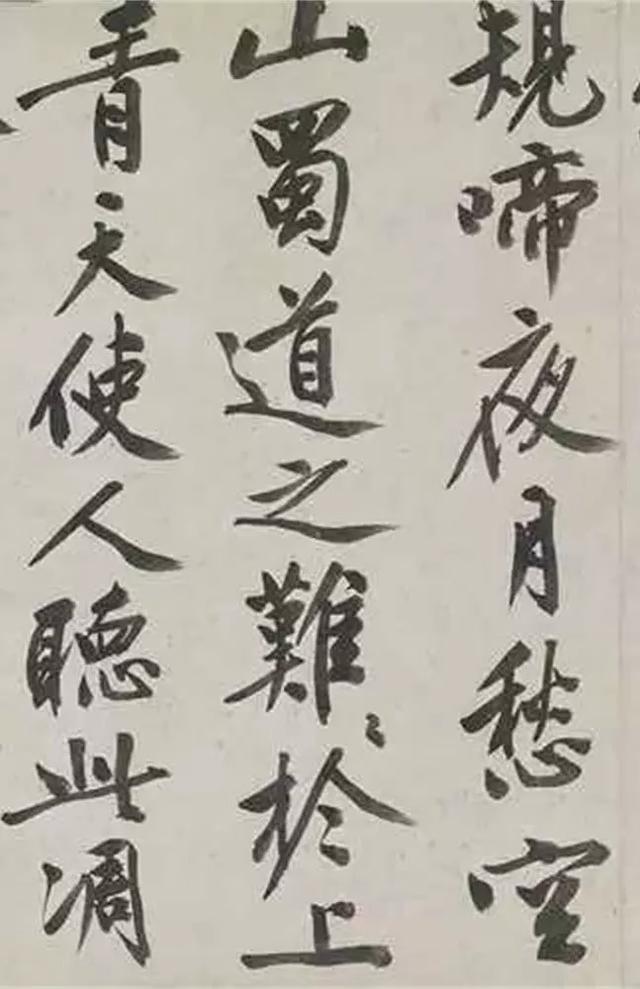 規啼夜月愁空
山蜀道之難〻於上
青天使人聽此凋